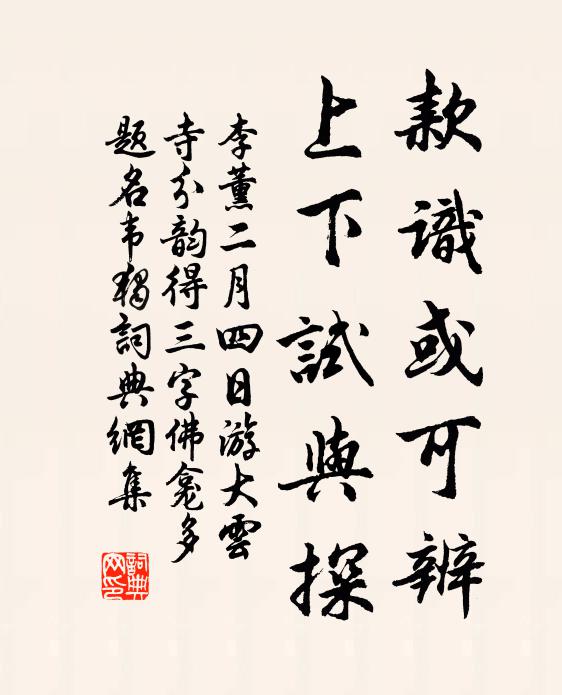 款識或可辨
上下試與探
李薰二月四日游大雲
寺分韵得三字佛龕多
題名韦獨詞典網集
詞典網印